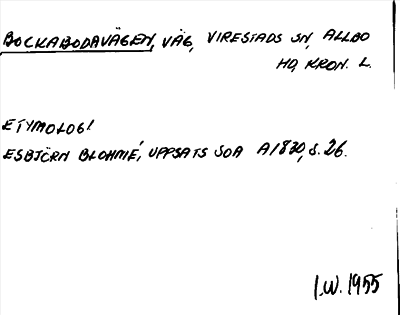 BOCKABODAVÄGEN, VÄG, VIRESTADS SN, ALLBO
HD, KRON. L.
ETYMOLOGI
ESBJÖRN BLOHMÉ, UPPSATS SOA A1830, S. 26.
I.W. 1955